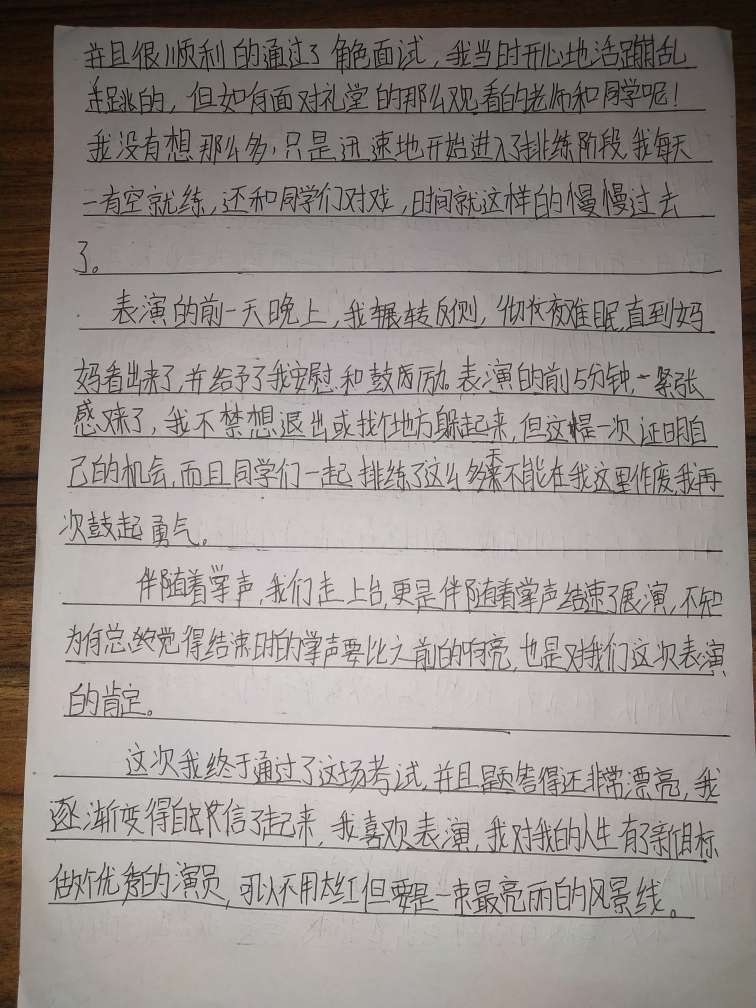 并且很顺利的通过了角色面试，我当时开心地活蹦乱
跳的，但如何面对礼堂的那么观看的老师和同学呢！
我没有想那么多，只是迅速地开始进入了排练阶段，我每天
一有空就练，还和同学们对戏，时间就这样的慢慢过去
了。
表演的前一天晚上，我辗转反侧，彻夜难眠，直到妈
妈看出来了，并给予了我安慰和鼓励。表演的前15分钟，紧张
感来了，我不禁想退出或找个地方躲起来，但这是一次证明自
己的机会，而且同学们一起排练了这么多天不能在我这里作废，我再
次鼓起勇气。
伴随着掌声，我们走上台，更是伴随着掌声结束了展演，不知
为何总终觉得结束时的掌声要比之前的响亮，也是对我们这次表演
的肯定。
这次我终于通过了这场考试，并且题答得还非常漂亮，我
逐渐变得自信了起来，我喜欢表演，我对我的人生有了新目标
做个优秀的演员，可以不用大红但要是一束最亮丽的风景线。